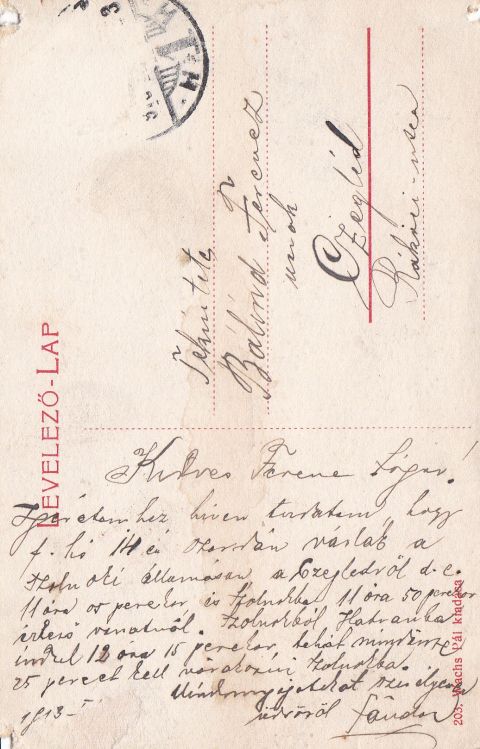 LEVELEZŐ-LAP
Tekintetes
Bálind Ferencz
urnak
Czegléd
Rákóczi-utca
Kedves Ferenc Sógor!
Igéretemhez hiven tudatom, hogy
f. hó 14 én szerdán várlak a
szolnoki állomáson a Czeglédről d. e.
11 óra 05 perckor, és Szolnokba 11 óra 50 perckor
érkező vonatnál. Szolnokból Hatvanba
indul 12 óra 15 perckor, tehát mindössze
25 percet kell várakozni Szolnokba.
Mindnyájatokat szivélyesen
1913- üdvözöl Sándor
203. Wachs Pál kiadása